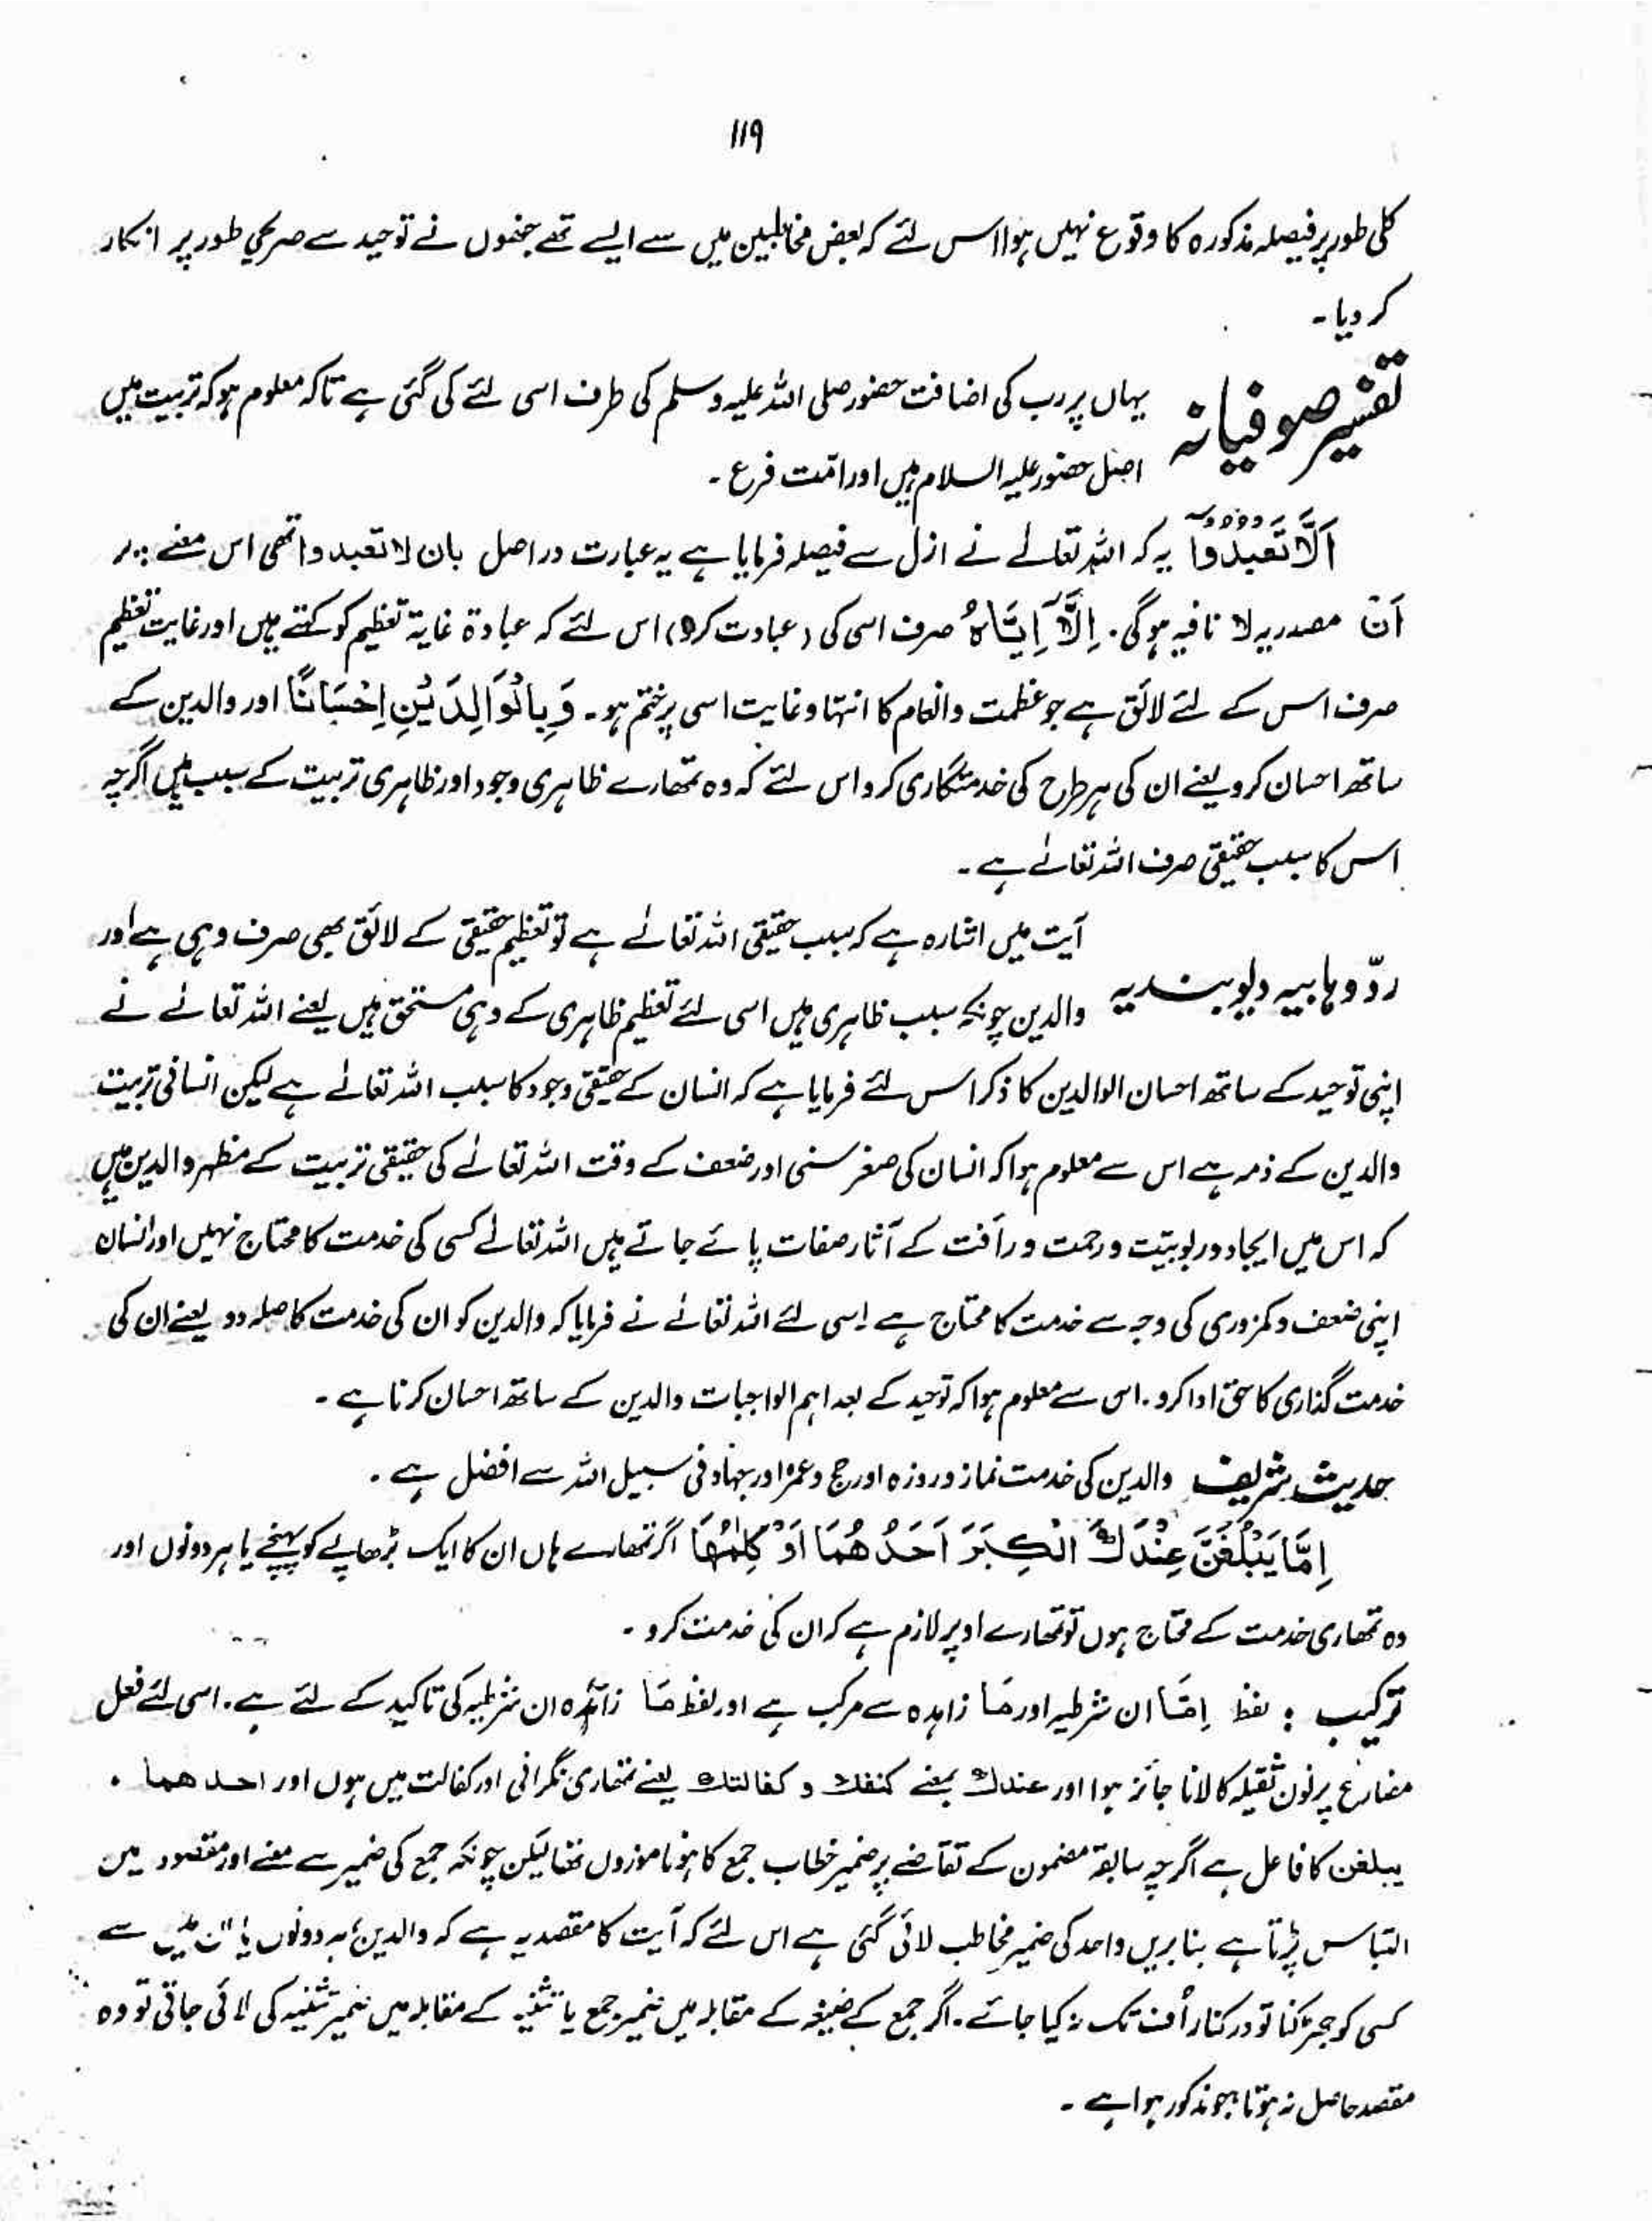 ۱۱۹
کلی طور پر فیصلہ مذکورہ کا وقوع نہیں ہوا اس لئے کہ بعض مخاطبین میں سے ایسے تھے جنھوں نے توحید سے صریحی طور پر انکار
کر دیا۔
تفسیر صوفیانہ
یہاں پر رب کی اضافت حضور صلی اللہ علیہ وسلم کی طرف اسی لئے کی گئی ہے تاکہ معلوم ہو کہ تربیت میں
اصل حضور علیہ السلام ہیں اور امّت فرع۔
اَلَّا تَعْبُدُوْٓا یہ کہ اللہ تعالےٰ نے ازل سے فیصلہ فرمایا ہے یہ عبارت در اصل بان لا تعبدوا تھی اس معنے پر
اَنْ مصدریہ لا نافیہ ہوگی۔ اِلَّآ اِیَّاہُ صرف اسی کی (عبادت کرو) اس لئے کہ عبادۃ غایۃ تعظیم کو کہتے ہیں اور غایت تعظیم
صرف اس کے لئے لائق ہے جو عظمت وانعام کا انتہا و غایت اسی پر ختم ہو۔ وَبِالْوَالِدَیْنِ اِحْسَانًا اور والدین کے
ساتھ احسان کرو یعنے ان کی ہر طرح کی خدمتگاری کرو اس لئے کہ وہ تمھارے ظاہری وجود اور ظاہری تربیت کے سبب ہیں اگرچہ
اس کا سبب حقیقی صرف اللہ تعالےٰ ہے۔
ردّ وہابیہ دیوبندیہ
آیت میں اشارہ ہے کہ سبب حقیقی اللہ تعالےٰ ہے تو تعظیم حقیقی کے لائق بھی صرف وہی ہے اور
والدین چونکہ سبب ظاہری ہیں اسی لئے تعظیم ظاہری کے وہی مستحق ہیں یعنے اللہ تعالےٰ نے
اپنی توحید کے ساتھ احسان الوالدین کا ذکر اس لئے فرمایا ہے کہ انسان کے حقیقی وجود کا سبب اللہ تعالےٰ ہے لیکن انسانی تربیت
والدین کے ذمہ ہے اس سے معلوم ہوا کہ انسان کی صغر سنی اور ضعف کے وقت اللہ تعالےٰ کی حقیقی تربیت کے مظہر والدین ہیں
کہ اس میں ایجاد و ربوبیّت و رحمت و رأفت کے آثار صفات پائے جاتے ہیں اللہ تعالےٰ کسی کی خدمت کا محتاج نہیں اور انسان
اپنی ضعف و کمزوری کی وجہ سے خدمت کا محتاج ہے اسی لئے اللہ تعالےٰ نے فرمایا کہ والدین کو ان کی خدمت کا صلہ دو یعنے ان کی
خدمت گذاری کا حق ادا کرو۔ اس سے معلوم ہوا کہ توحید کے بعد اہم الواجبات والدین کے ساتھ احسان کرنا ہے۔
حدیث شریف والدین کی خدمت نماز و روزہ اور حج و عمرہ اور جہاد فی سبیل اللہ سے افضل ہے۔
اِمَّا یَبْلُغَنَّ عِنْدَكَ الْكِبَرَ اَحَدُهُمَا اَوْ كِلٰهُمَا اگر تمھارے ہاں ان کا ایک بڑھاپے کو پہنچے یا ہر دونوں اور
وہ تمھاری خدمت کے محتاج ہوں تو تمھارے اوپر لازم ہے کہ ان کی خدمت کرو۔
ترکیب : لفظ اِمَّا ان شرطیہ اور مَا زاہدہ سے مرکب ہے اور لفظ مَا زائدہ ان شرطیہ کی تاکید کے لئے ہے۔ اسی لئے فعل
مضارع پر نون ثقیلہ کا لانا جائز ہوا اور عندك بمعنے کنفك و کفالتك یعنے تمھاری نگرانی اور کفالت میں ہوں اور احدھما۔
یبلغن کا فاعل ہے اگرچہ سابقہ مضمون کے تقاضے پر ضمیر خطاب جمع کا ہونا موزوں تھا لیکن چونکہ جمع کی ضمیر سے معنے اور مقصود میں
التباس پڑتا ہے بنا بریں واحد کی ضمیر مخاطب لائی گئی ہے اس لئے کہ آیت کا مقصد یہ ہے کہ والدین ہر دونوں یا ان میں سے
کسی کو جھڑکنا تو درکنار اُف تک نہ کیا جائے۔ اگر جمع کے صیغہ کے مقابلہ میں ضمیر جمع یا تثنیہ کے مقابلہ میں ضمیر تثنیہ کی لائی جاتی تو وہ
مقصد حاصل نہ ہوتا جو مذکور ہوا ہے۔